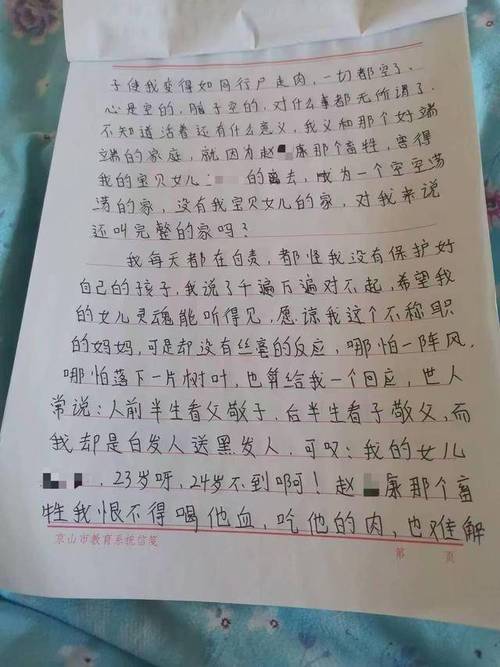 子使我变得如同行尸走肉，一切都空了，
心是空的，脑子空的，对什么事都无所谓了，
不知道活着还有什么意义，我义和那个好端
端的家庭，就因为赵康那个畜牲，害得
我的宝贝女儿：的离去，成为一个空空荡
荡的家，没有我宝贝女儿的家，对我来说
还叫完整的家吗？
我每天都在自责，都怪我没有保护好
自己的孩子，我说了千遍万遍对不起，希望我
的女儿灵魂能听得见，原谅我这个不称职
的妈妈，可是却没有丝毫的反应，哪怕一阵风，
哪怕落下一片树叶，也算给我一个回应，世人
常说：人前半生看父敬子，后半生看子敬父，而
我却是白发人送黑发人，可叹：我的女儿
，23岁呀，24岁不到啊！赵康那个畜
牲我恨不得喝他血，吃他的肉，也难解
京山市教育系统信笺 第 页